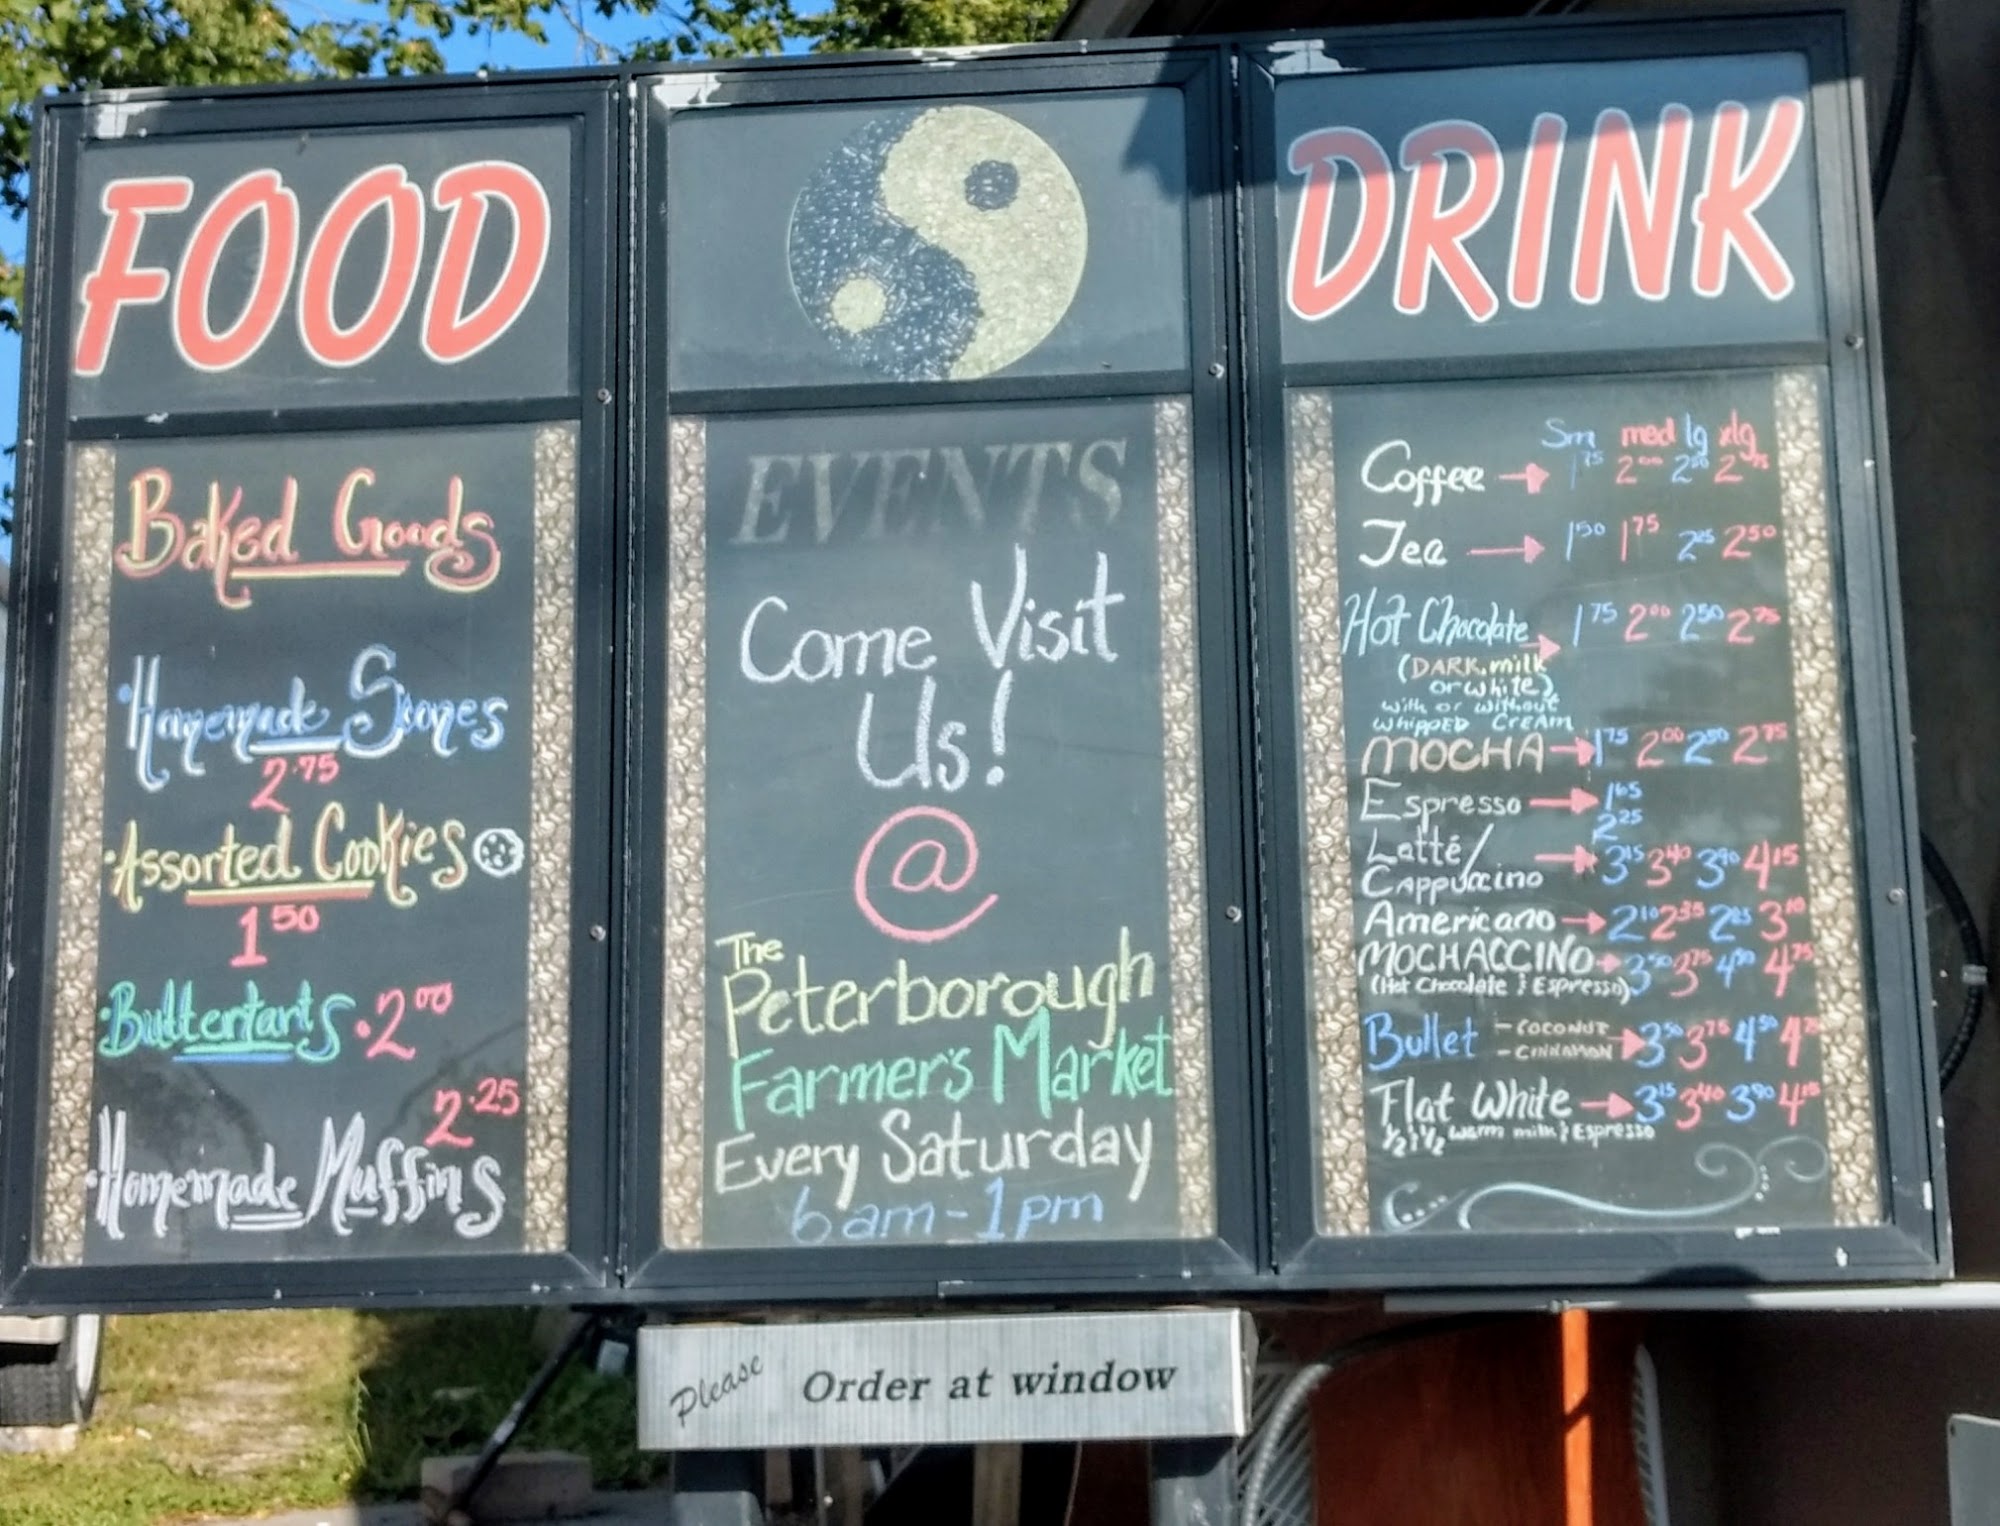 FOOD
Baked Goods
• Homemade Scones
2.75
• Assorted Cookies
1 50
• Buttertarts • 2 00
2.25
• Homemade Muffins
EVENTS
Come Visit
Us!
@
The
Peterborough
Farmer's Market
Every Saturday
6 am - 1 pm
DRINK
Sm med lg xlg
Coffee → 1 75 2 00 2 50 2 75
Tea → 1 50 1 75 2 25 2 50
Hot Chocolate → 1 75 2 00 2 50 2 75
(DARK, milk
or white)
with or without
WHIPPED CREAM
MOCHA → 1 75 2 00 2 50 2 75
Espresso → 1 65
2 25
Latté/
Cappuccino → 3 15 3 40 3 90 4 15
Americano → 2 10 2 35 2 85 3 10
MOCHACCINO → 3 50 3 75 4 50 4 75
(Hot Chocolate & Espresso)
Bullet - COCONUT
- CINNAMON → 3 50 3 75 4 50 4 75
Flat White → 3 15 3 40 3 90 4 15
1/2 & 1/2 warm milk & Espresso
Please Order at window